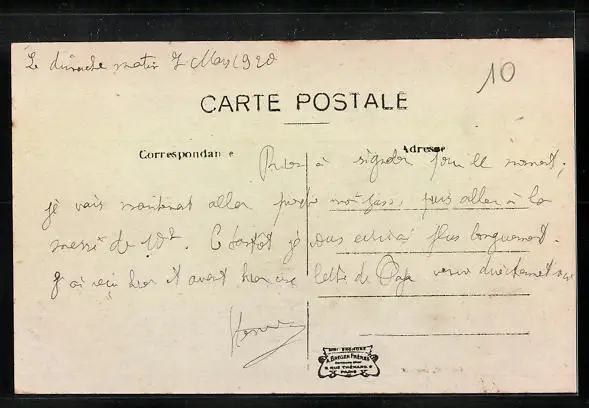 Le dimanche matin 7 Mars 1920
10
CARTE POSTALE
Correspondance
Adresse
Rien à signaler pour le moment,
je vais maintenant aller prendre mon jus, puis aller à la
messe de 10h. Ce tantôt je vous écrirai plus longuement.
J'ai reçu hier et avant hier une lettre de Papa venue directement
A. BREGER FRÈRES
9 RUE THÉNARD, 9
PARIS